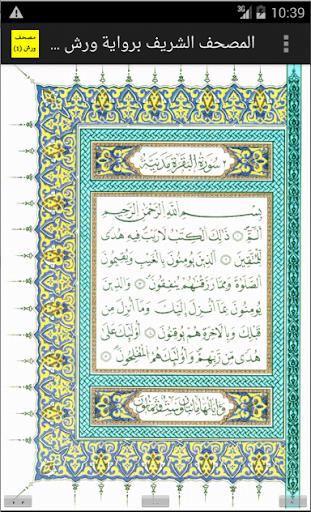 3G 10:39
مصحف
ورش (1)
المصحف الشريف برواية ورش ...
سورة البقرة مدنية
بِسْمِ اللَّهِ الرَّحْمَٰنِ الرَّحِيمِ
أَلَمِّ ذَٰلِكَ الْكِتَٰبُ لَا رَيْبَ فِيهِ هُدىً
لِّلْمُتَّقِينَ الَّذِينَ يُومِنُونَ بِالْغَيْبِ وَيُقِيمُونَ
الصَّلَوٰةَ وَمِمَّا رَزَقْنَٰهُمْ يُنفِقُونَ وَالَّذِينَ
يُومِنُونَ بِمَا أُنزِلَ إِلَيْكَ وَمَا أُنزِلَ مِن
قَبْلِكَ وَبِالَاخِرَةِ هُمْ يُوقِنُونَ أُوْلَٰئِكَ عَلَىٰ
هُدىً مِّن رَّبِّهِمْ وَأُوْلَٰئِكَ هُمُ الْمُفْلِحُونَ
وآياتها مائتان وست وثمانون